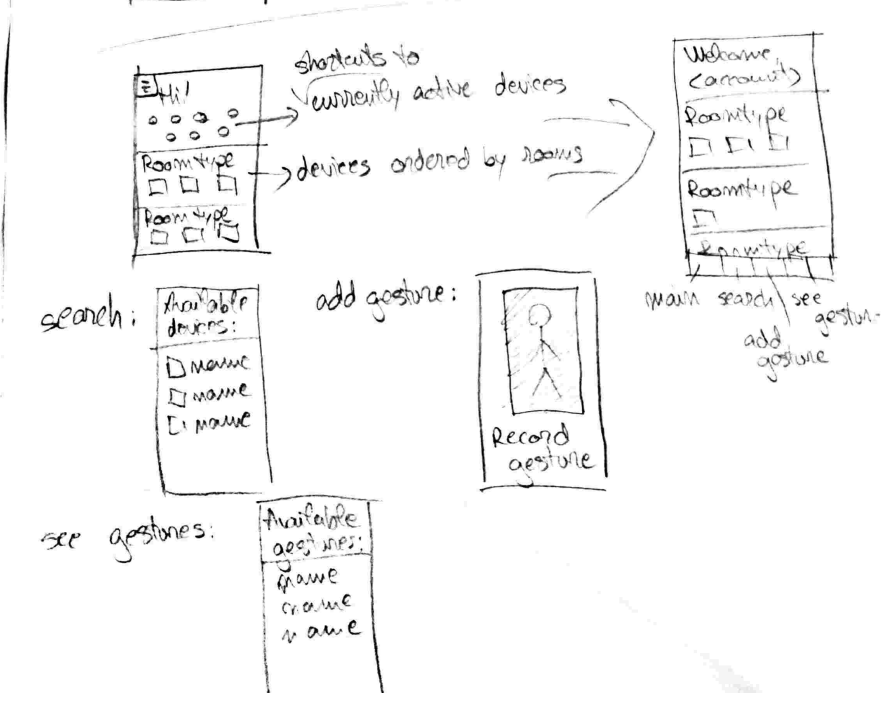 Hi!
Roomtype
Roomtype
shortcuts to
currently active devices
devices ordered by rooms
Welcome,
<account>
Roomtype
Roomtype
Roomtype
main search see
gestur-
add
gesture
search:
Available
devices:
name
name
name
add gesture:
Record
gesture
see gestures:
Available
gestures:
name
name
name